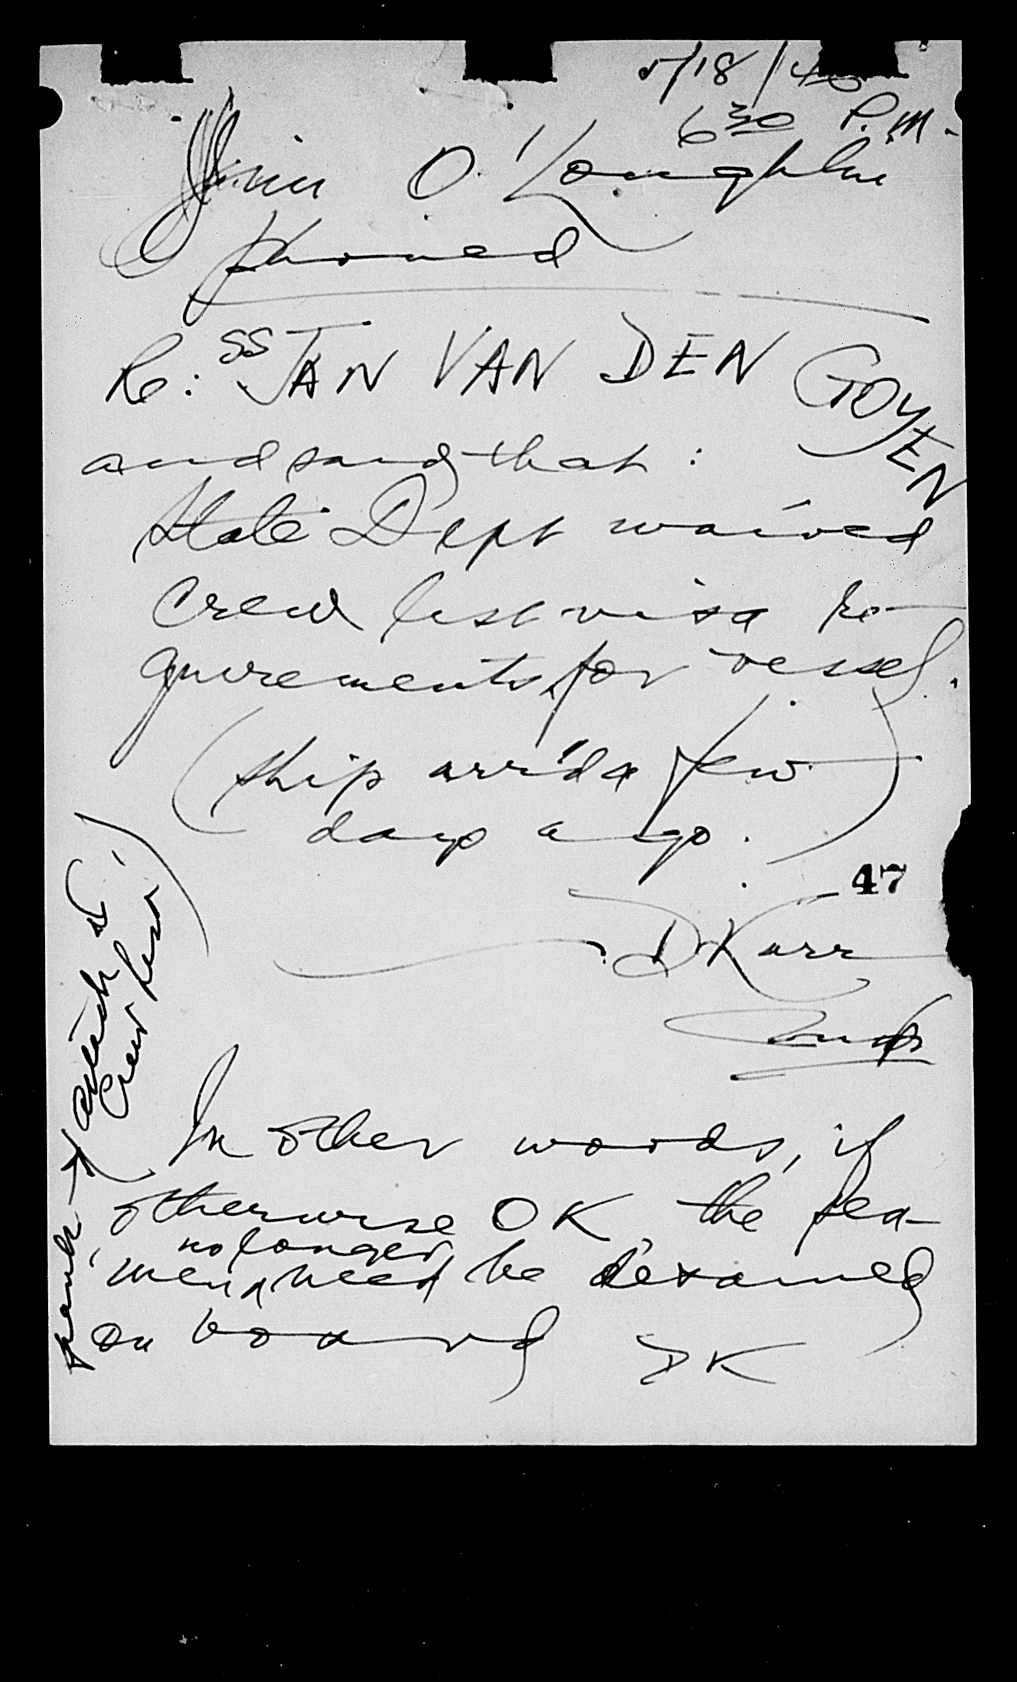 5/18/40
6 30 P.M.
Jim O'Loughlin
phoned
Re: SS JAN VAN DEN GOYEN
and said that:
State Dept waived
crew list visa re-
quirements for vessel.
(ship arr'd a few
days ago.)
47
D Karr
Insp
In other words, if
otherwise OK, the sea-
men no longer need be detained
on board
DK
attach to
crew list